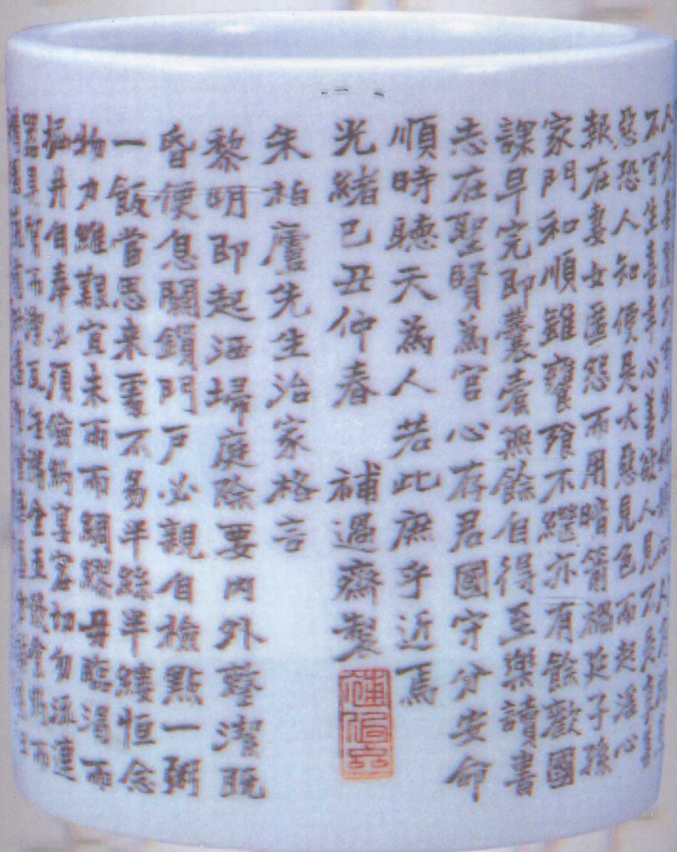 不可生喜幸心善欲人見不是真善
惡恐人知便是大惡見色而起淫心
報在妻女匿怨而用暗箭禍延子孫
家門和順雖饔飧不繼亦有餘歡國
課早完即囊橐無餘自得至樂讀書
志在聖賢為官心存君國守分安命
順時聽天為人若此庶乎近焉
光緒己丑仲春 補過齋製
朱柏廬先生治家格言
黎明即起洒埽庭除要內外整潔既
昏便息關鎖門戶必親自檢點一粥
一飯當思來處不易半絲半縷恒念
物力維艱宜未雨而綢繆毋臨渴而
掘井自奉必須儉約宴客切勿流連
器具質而潔瓦缶勝金玉飲食約而